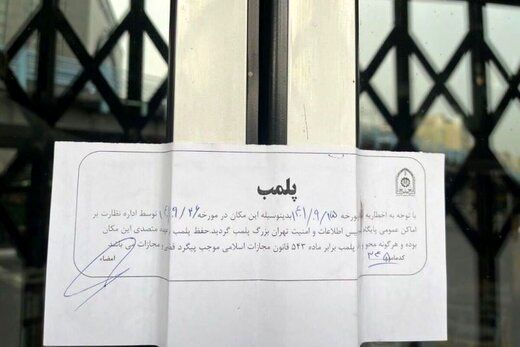 پلمب
با توجه به اخطاریه مورخه ۱۴۰۱/۹/۱۵ بدینوسیله این مکان در مورخه توسط اداره نظارت بر
اماکن عمومی پایگاه پلیس اطلاعات و امنیت تهران بزرگ پلمب گردید.حفظ پلمب بعهده متصدی این مکان
بوده و هرگونه محو پلمب برابر ماده ۵۴۳ قانون مجازات اسلامی موجب پیگرد قضایی مجازات می باشد.
کدمامور امضاء